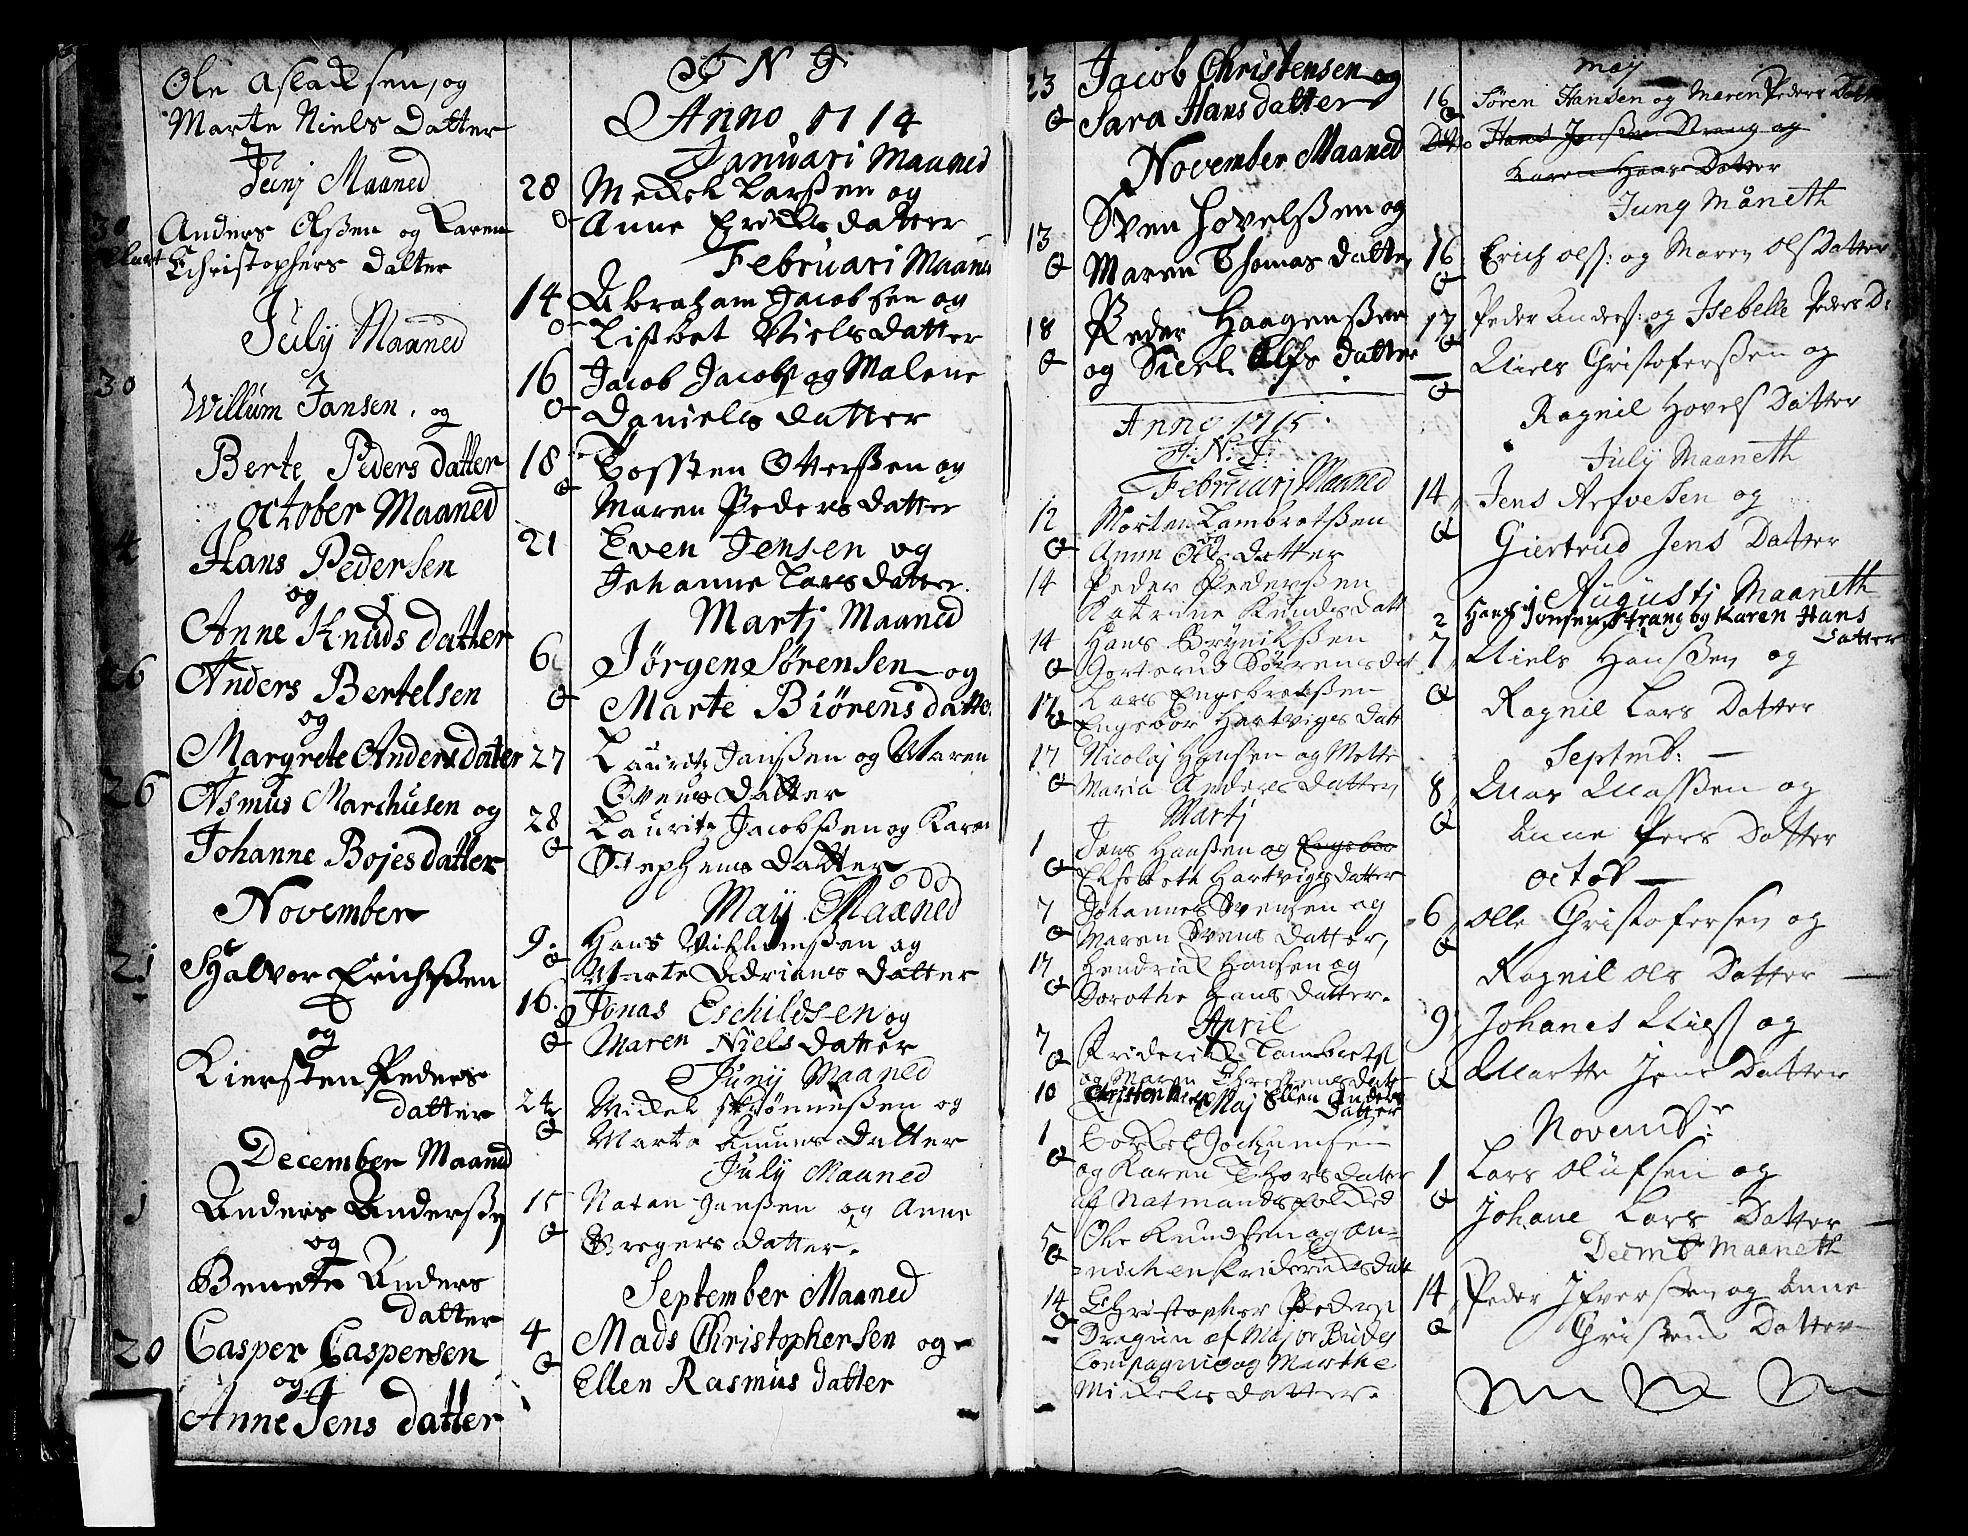 Ole Aslachsen, og
Marte Niels Datter
Junj Maaned
30 Anders Olßen og Karen
Christophers Datter
July Maaned
30
Willum Jansen, og
Berte Peders datter
october Maaned
4 Hans Pedersen
og
Anne Knuds datter
26 Anders Bertelsen
og
Margrete Anders datter
26 Asmus Marchusen og
Johanne Bojes datter
November
21 Halvor Erichßen
og
Kiersten Peders
datter
December Maaned
j Anders Anderßen
og
Benete Anders
datter
20 Casper Caspersen
og
Anne Jens datter
J N J
Anno 1714
Januari Maaned
28 Mickel Larßen og
Anne Ericks datter
Februari Maaned
14 Abraham Jacobsen og
Lisbet Niels datter
16 Jacob Jacobs og Malene
Daniels datter
18 Tossten Otterßen og
Maren Peders datter
21 Even Jensen og
Johanne Lars datter
Martj Maaned
6 Jørgen Sørensen og
Marte Biørens datter
27 Lauritz Janßen og Maren
Ovens datter
28 Lauritz Jacobßen og Karen
Stephens datter
Maij Maaned
9. Hans Villumßen og
Marte Adrians datter
16. Jonas Eschildsen og
Maren Niels datter
Junij Maaned
24 Mickel Skrønneßen og
Marte Annes datter
July Maaned
15 Natan Janßen og Anne
Bregers datter.
September Maaned
4 Mads Christophersen og
Ellen Rasmus datter
23 Jacob Christensen og
Sara Hans datter
November Maaned
13 Sven Hovelßen og
Maren Thomas datter
18 Peder Haagenßen
og Sierl. Alfs datter
Anno 1715
J. N. J.
Februarj Maaned
12 Morten Lambretßen
og
Anne Ols datter
14 Peder Pederßen
Katrine Knuds datt
14 Hans Brynilßen
Gertrud Sørrens dat
17 Lars Engebretßen
Engebor Hartvigs datt
17 Nicolaj Hansen og Mette
Maria Anders datter
Martj
1 Jens Hanßen og Engebor
Elsebeth Hartvigs datter
7 Johannes Svensen og
Maren Svens datter,
17 Hendrick Hansen og
Dorothe Hans datter.
April
7 Friderick Lambrets
og Maren Christens datt
10 Christen Ellen Anders
Maj Datter
1 Torkel Jochumsen
og Karen Thors datter
af Natmands folcked
5 Ole Knudsen og An=
=nichen Fridericks datt
14 Christopher Peders
Dragun af Major Budes
Compagnie og Marthe
Mickels datter.
may
16 Søren Hansen og Maren Peders Datter
Dito Hans Jenßen Strang og
Karen Hans Datter
Juny Måneth
16 Erich olß: og Maren Ols Datter
17 Peder Anders: og Isebelle Peders D:
Niels Christoferßen og
Ragnil Hovels Datter
July Maaneth
14 Jens Arfvesen og
Giertrud Jens Datter
Augustj Maaneth
2 Hans Jonsen Strang og Karen Hans
Datter
7 Niels Hanßen og
Ragnil Lars Datter
Septmb:
8 Mas Maßen og
Anne Pers Datter
octob
6 olle Christofersen og
Ragnil ols Datter
9 Johanes Niels og
Martte Jens Datter
Novemb:
1 Lars Olufsen og
Johane Lars Datter
Decmb Maaneth
14 Peder Ifverßen og Anne
Christens Datter